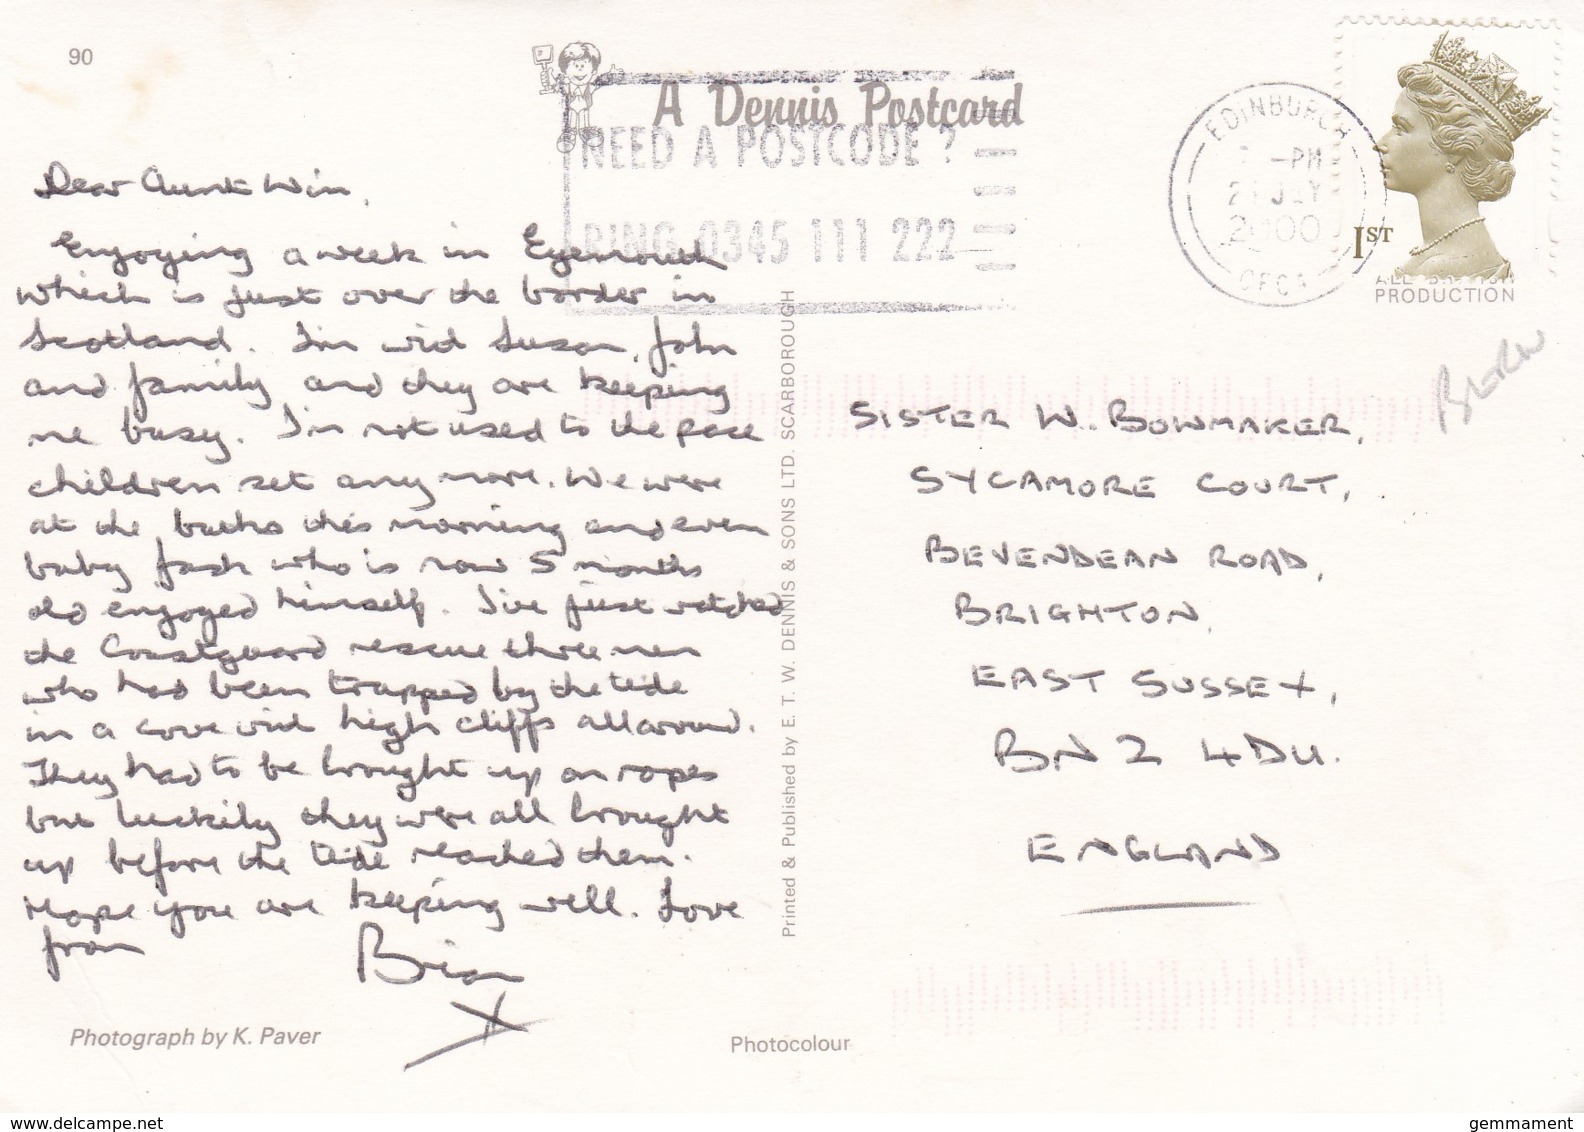 90
A Dennis Postcard
NEED A POSTCODE ?
RING 0345 111 222
EDINBURGH
-PM
21 JLY
2000
1ST
PRODUCTION
Dear Aunt Win,
Enjoying a week in Eyemouth
which is just over the border in
Scotland. I'm with Susan, John
and family and they are keeping
me busy. I'm not used to the pace
children set any more. We were
at the baths this morning and even
baby Jack who is now 5 months
old enjoyed himself. I've just watched
the Coastguard rescue three men
who had been trapped by the tide
in a cove with high cliffs all around.
They had to be brought up on ropes
but luckily they were all brought
up before the tide reached them.
Hope you are keeping well. Love
from Brian
X
Printed & Published by E. T. W. DENNIS & SONS LTD. SCARBOROUGH
SISTER W. BOWMAKER,
SYCAMORE COURT,
BEVENDEAN ROAD,
BRIGHTON,
EAST SUSSEX,
BN2 4DU.
ENGLAND
Photograph by K. Paver
Photocolour
www.delcampe.net
gemmament